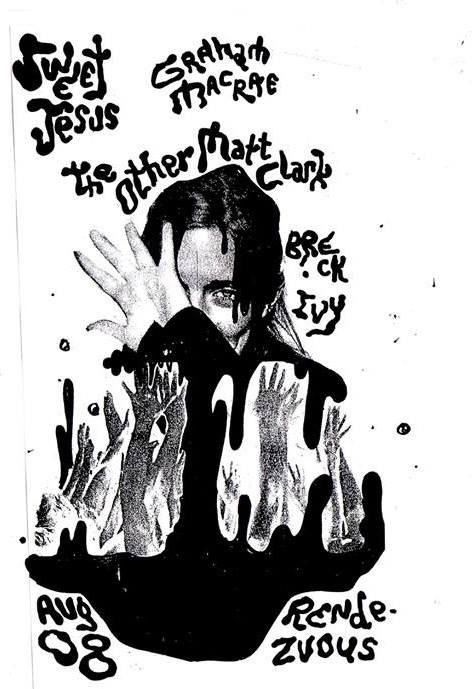 SWEET
JESUS
GRAHAM
MACRAE
the Other Matt
Clark
BRE
ICK
IVY
Aug
08
RENDE-
ZVOUS